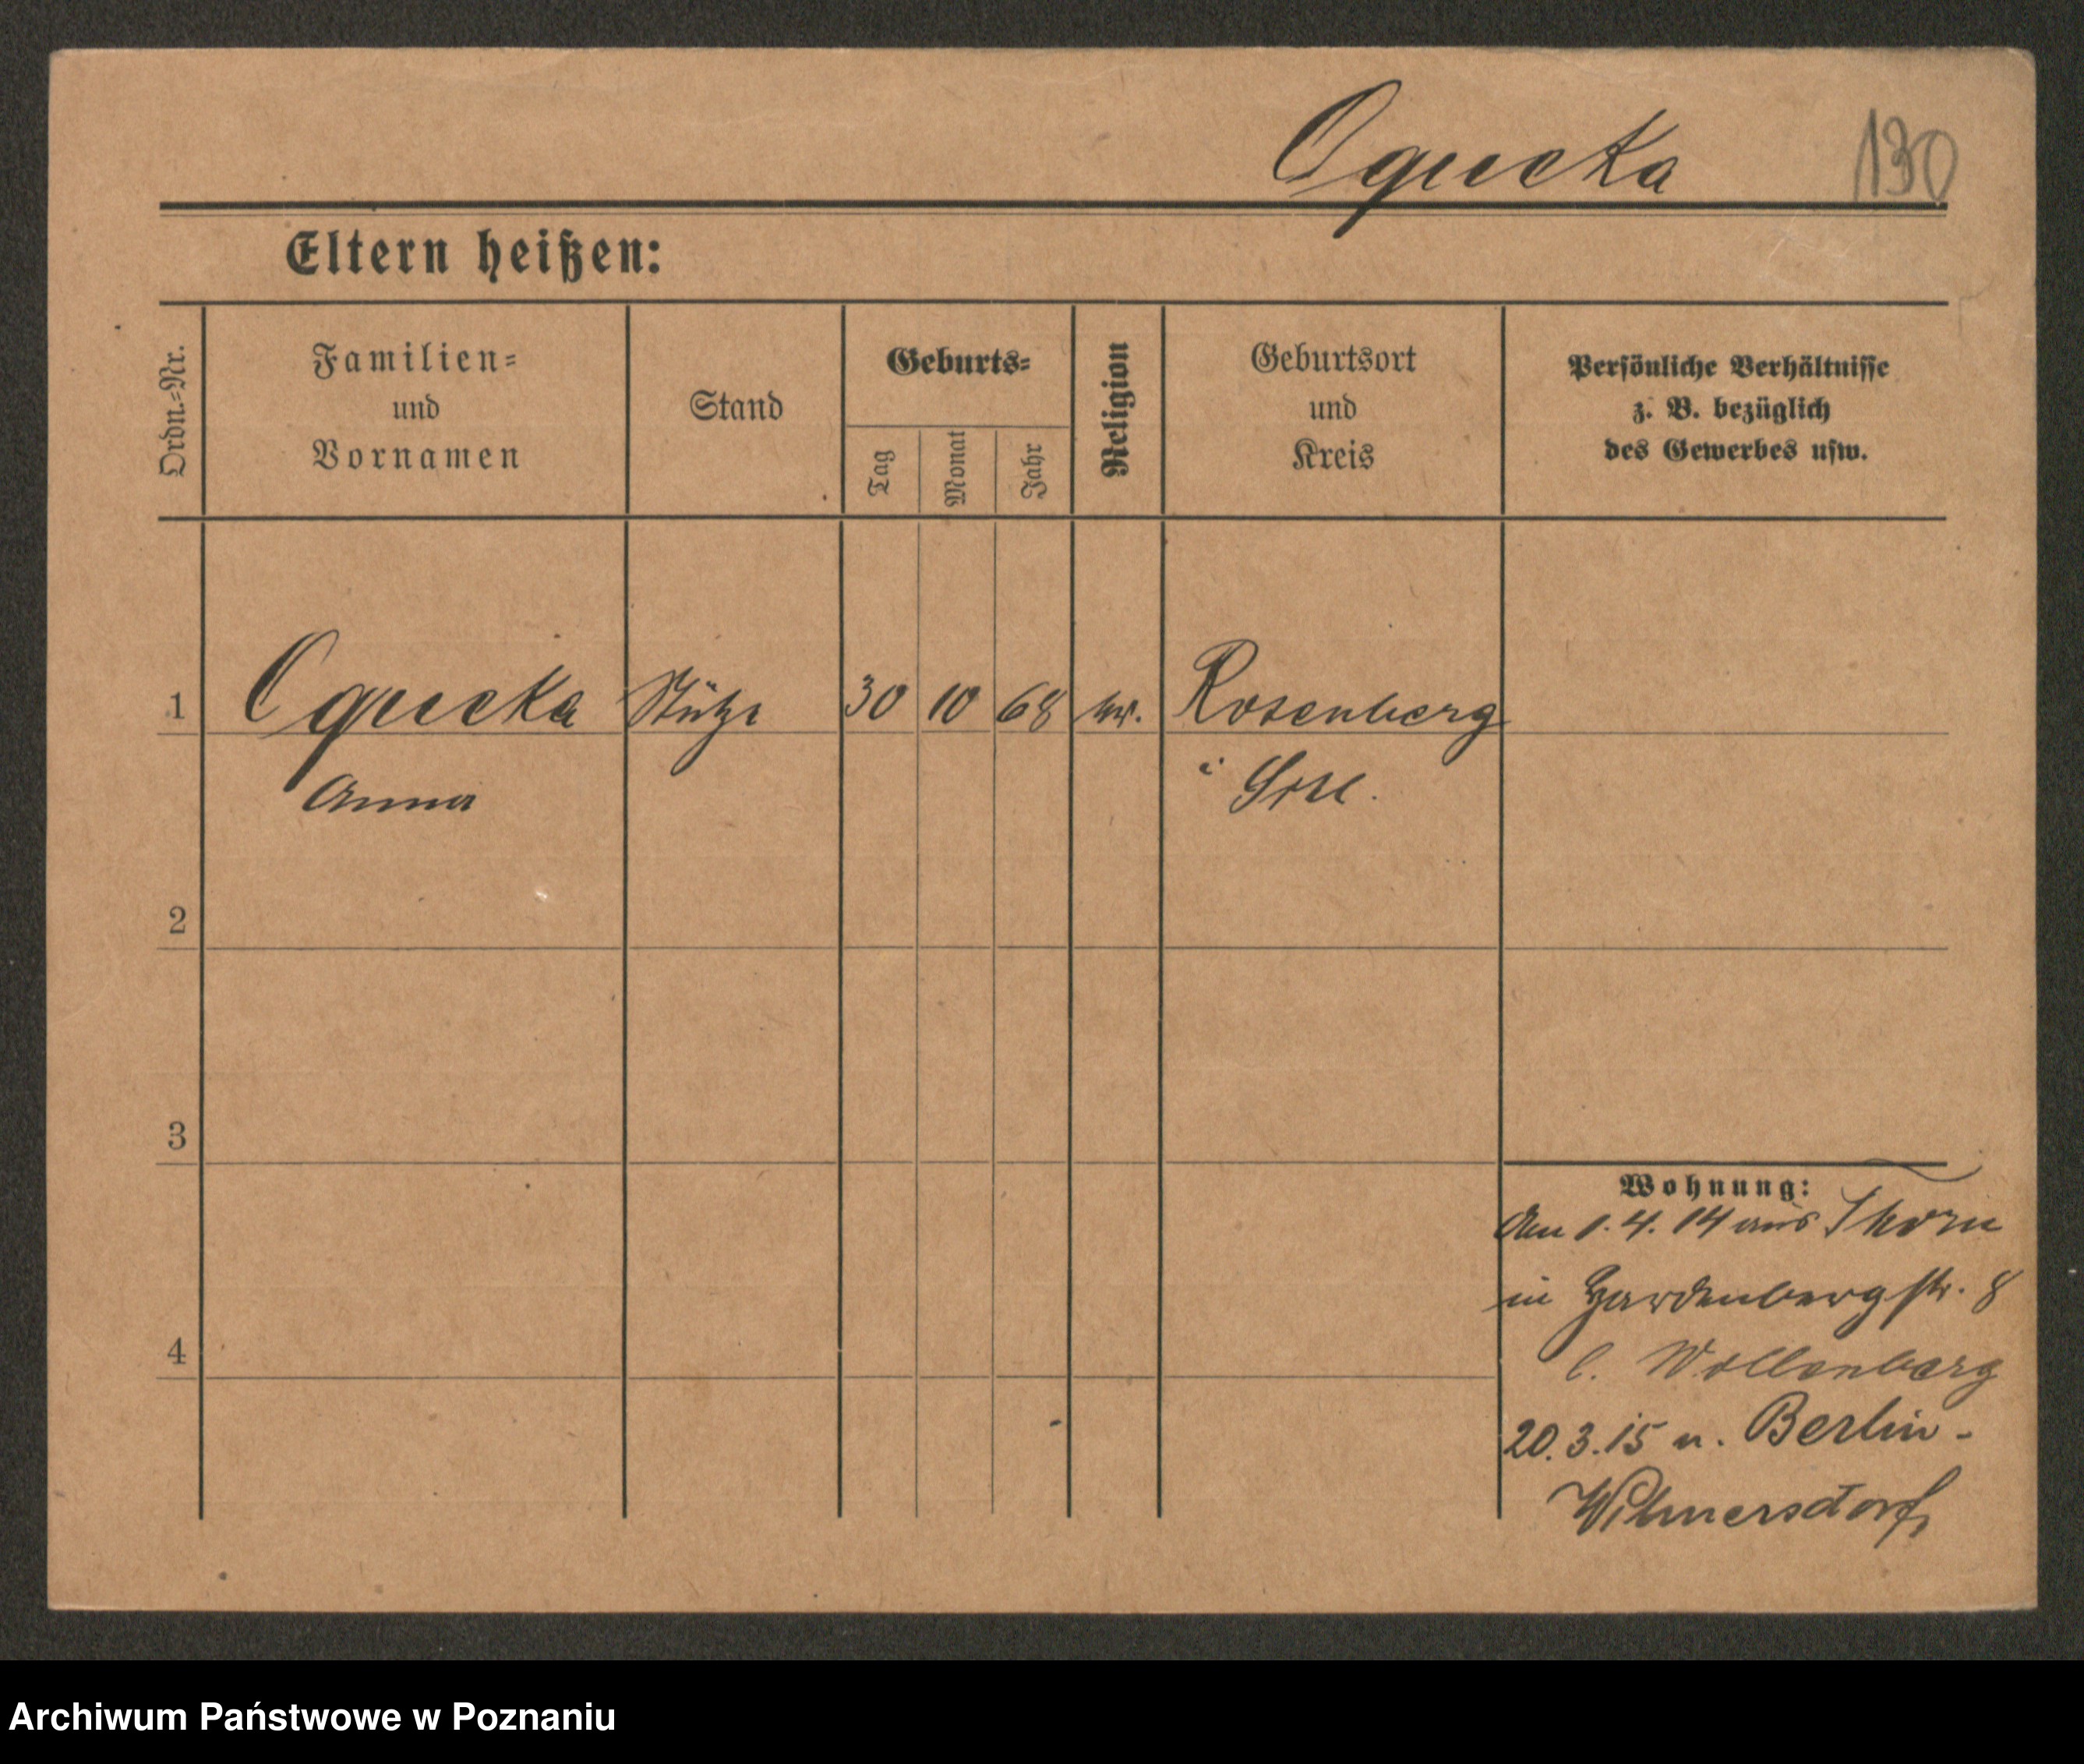 Ogucka 130
Eltern heißen:
Ordn.-Nr.
Familien-
und
Vornamen
Stand
Geburts-
Tag
Monat
Jahr
Religion
Geburtsort
und
Kreis
Persönliche Verhältnisse
z. B. bezüglich
des Gewerbes usw.
1 Ogucka Stütze 30 10 68 Rosenberg
Anna i
2
3
4
Wohnung:
Am 1.4.14 aus Thorn
in Hardenbergstr. 8
b. Wollenberg
20.3.15 n. Berlin-
Wilmersdorf
Archiwum Państwowe w Poznaniu